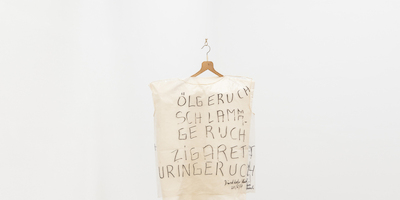 ÖLGERUCH
SCHLAMM.
GERUCH
ZIGARETT
URINGERUCH